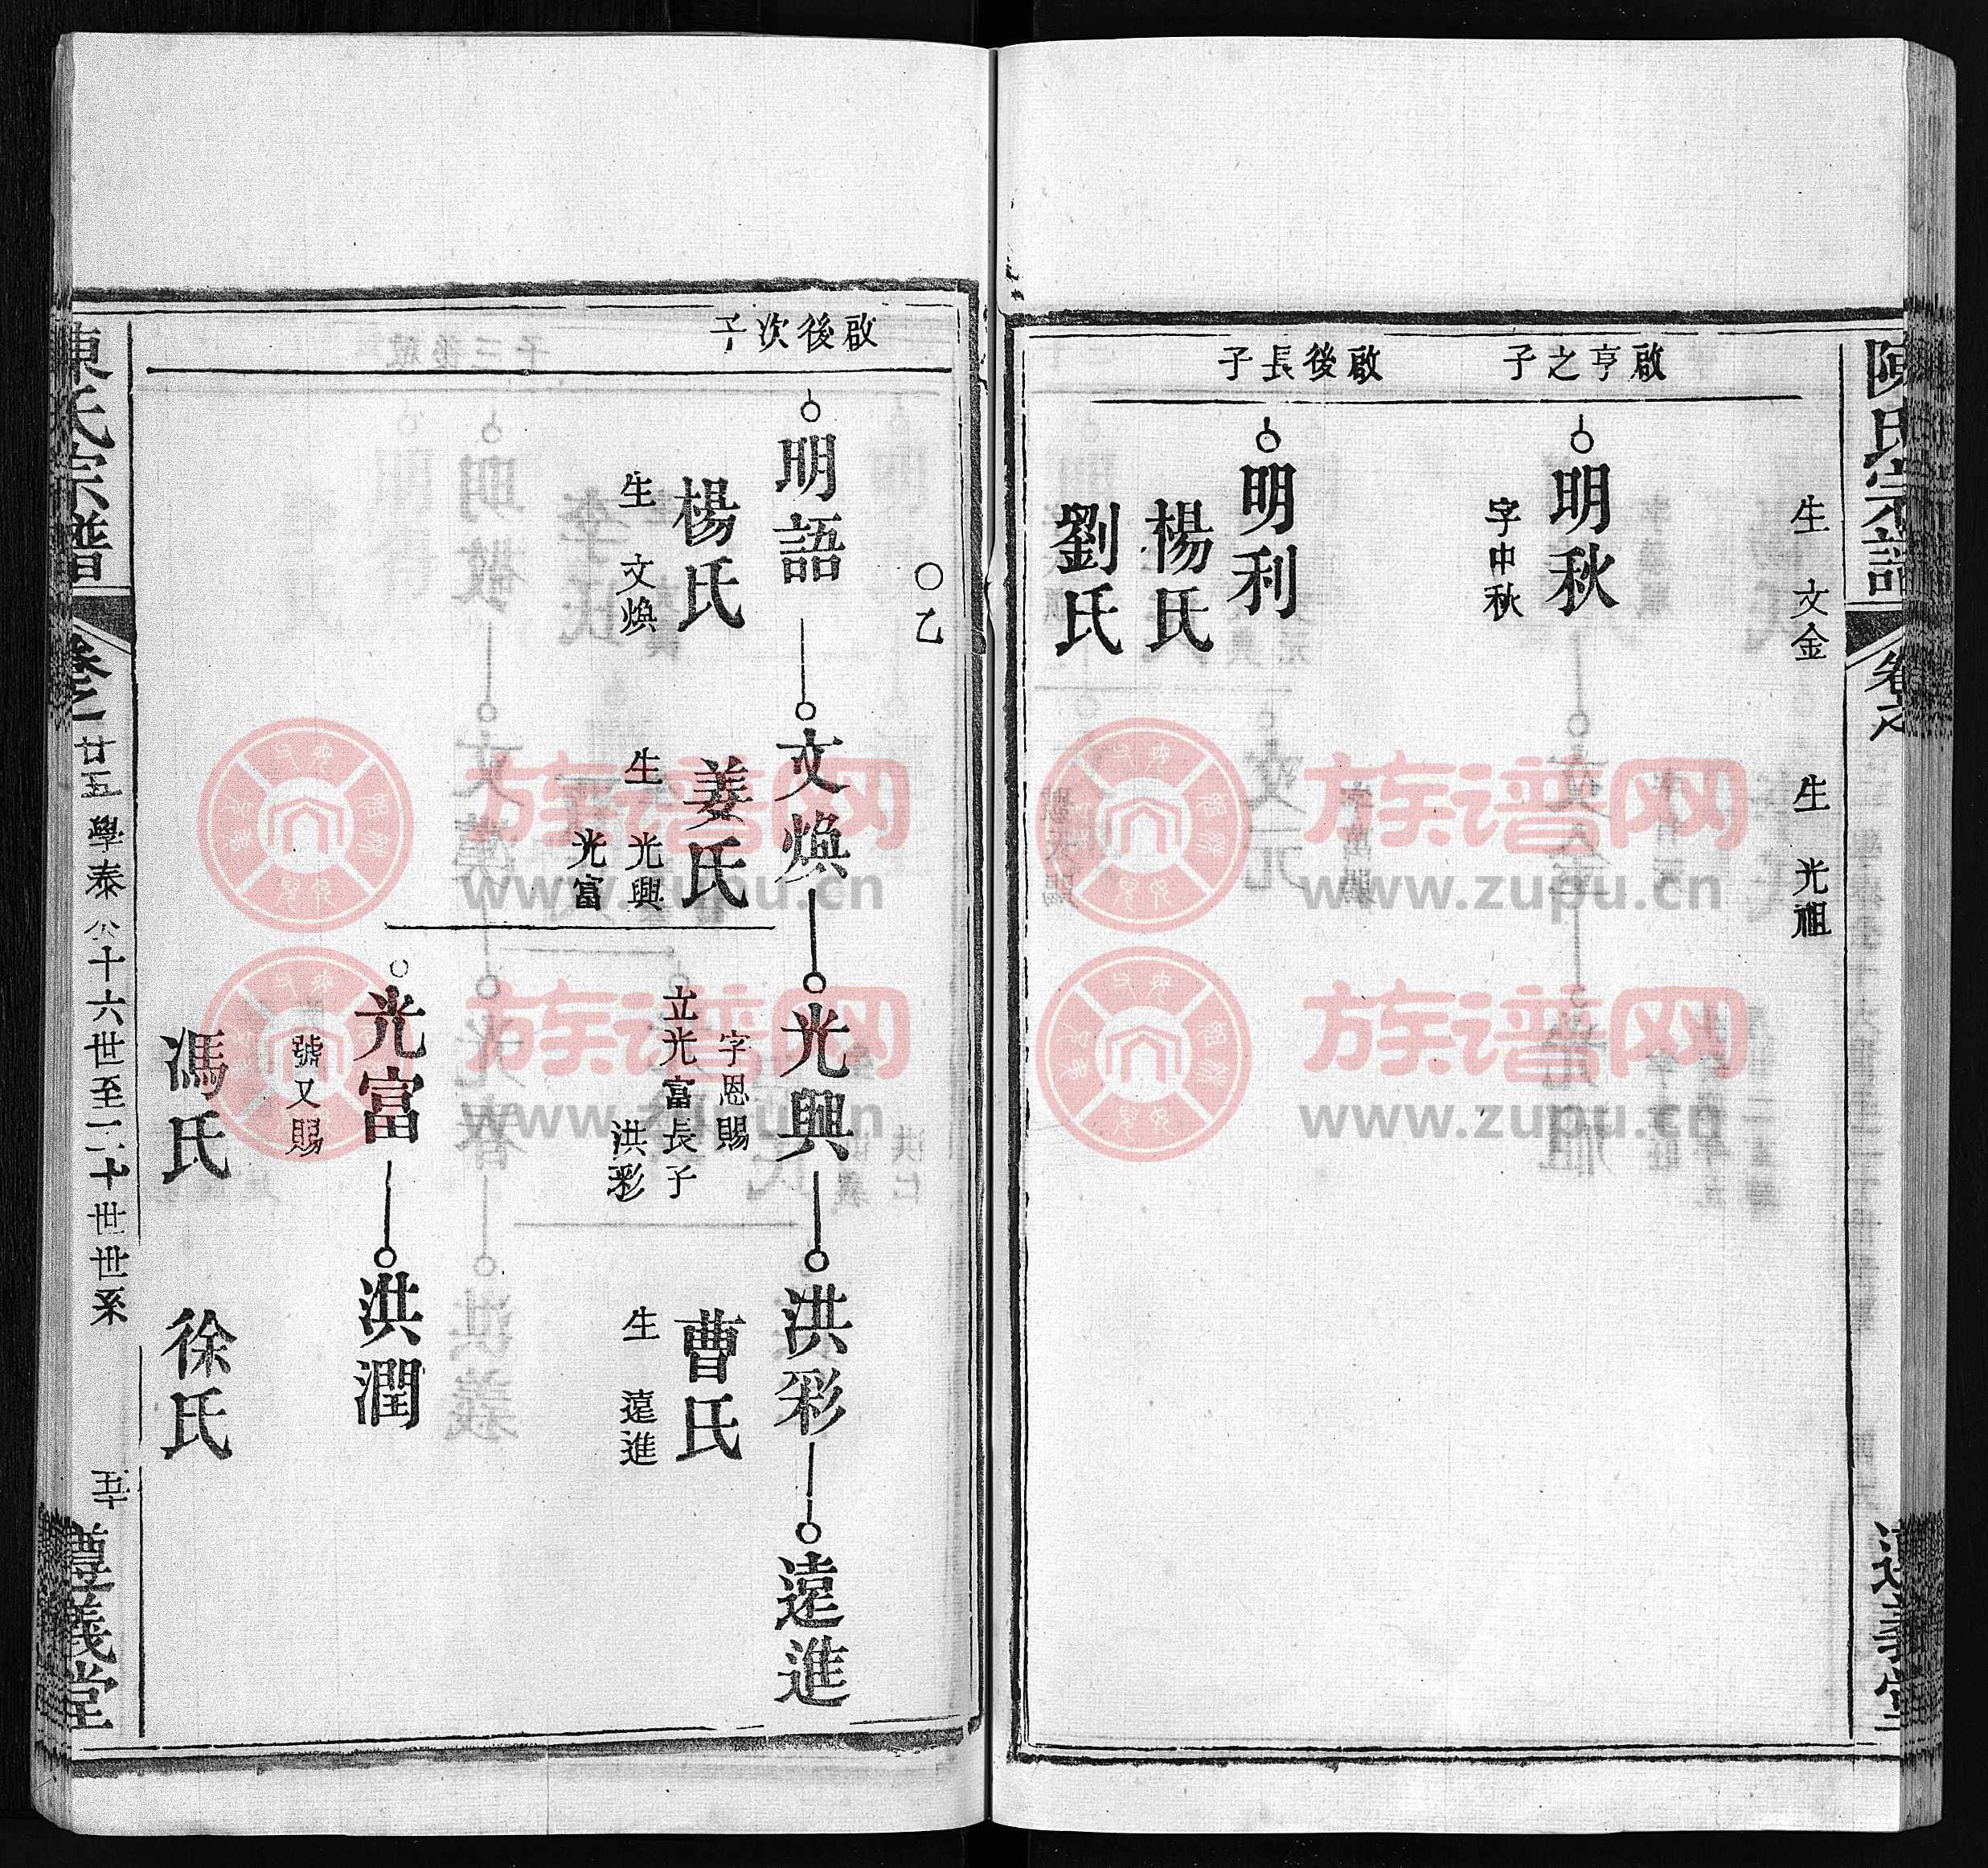 陳氏宗譜
卷之
遵義堂
生 文金
生 光祖
啟亨之子
明秋
字中秋
啟後長子
明利
楊氏
劉氏
〇乙
啟後次子
明語
文煥
光興
洪彩
遠進
楊氏
生 文煥
姜氏
生 光興
光富
字恩賜
立光富長子
洪彩
曹氏
生 遠進
光富
洪潤
號又賜
馮氏
徐氏
陳氏宗譜
卷之一
廿五學泰公十六世至二十世世系
五十
遵義堂
族谱网
www.zupu.cn
族谱网
www.zupu.cn
族谱网
www.zupu.cn
族谱网
www.zupu.cn